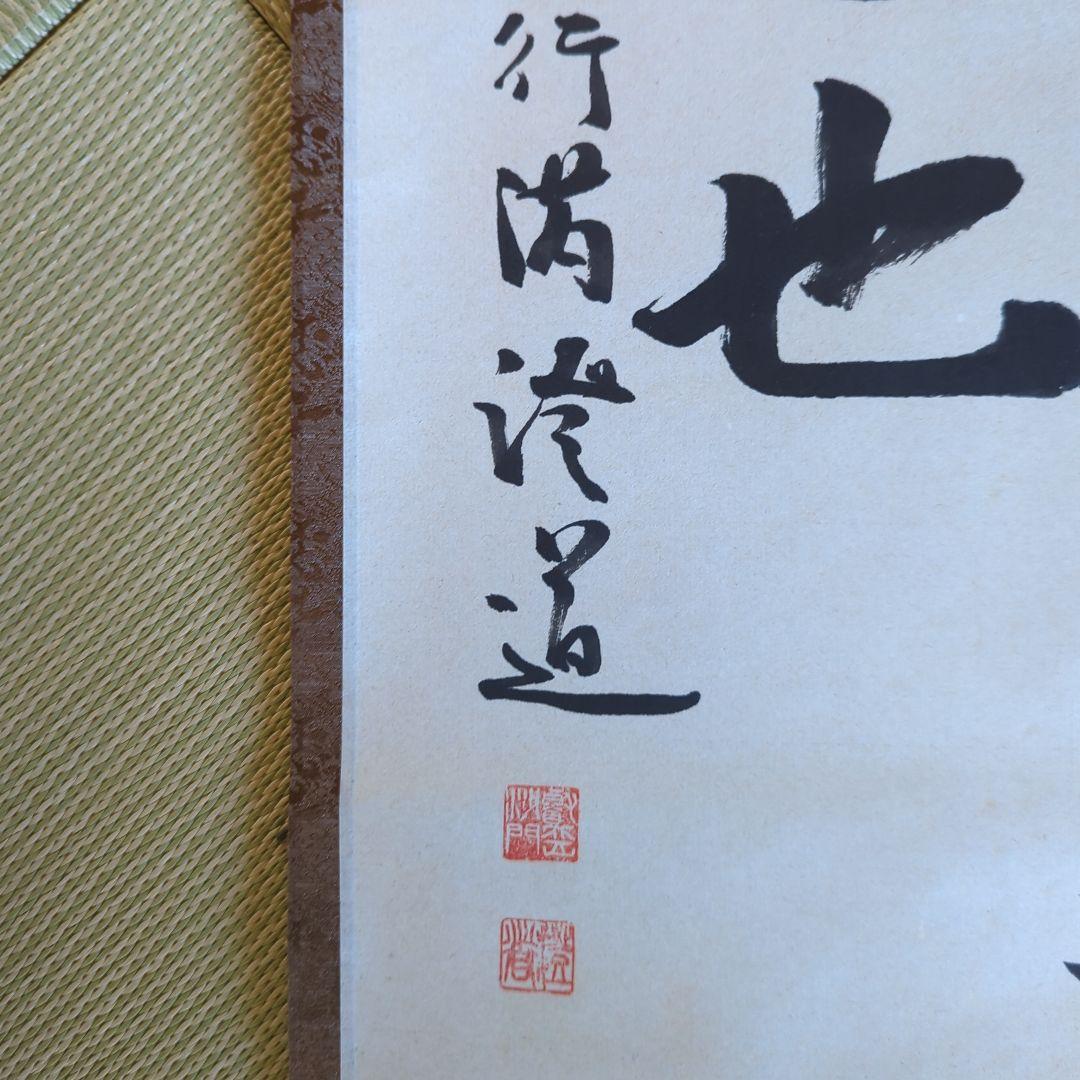 也
行満澄道